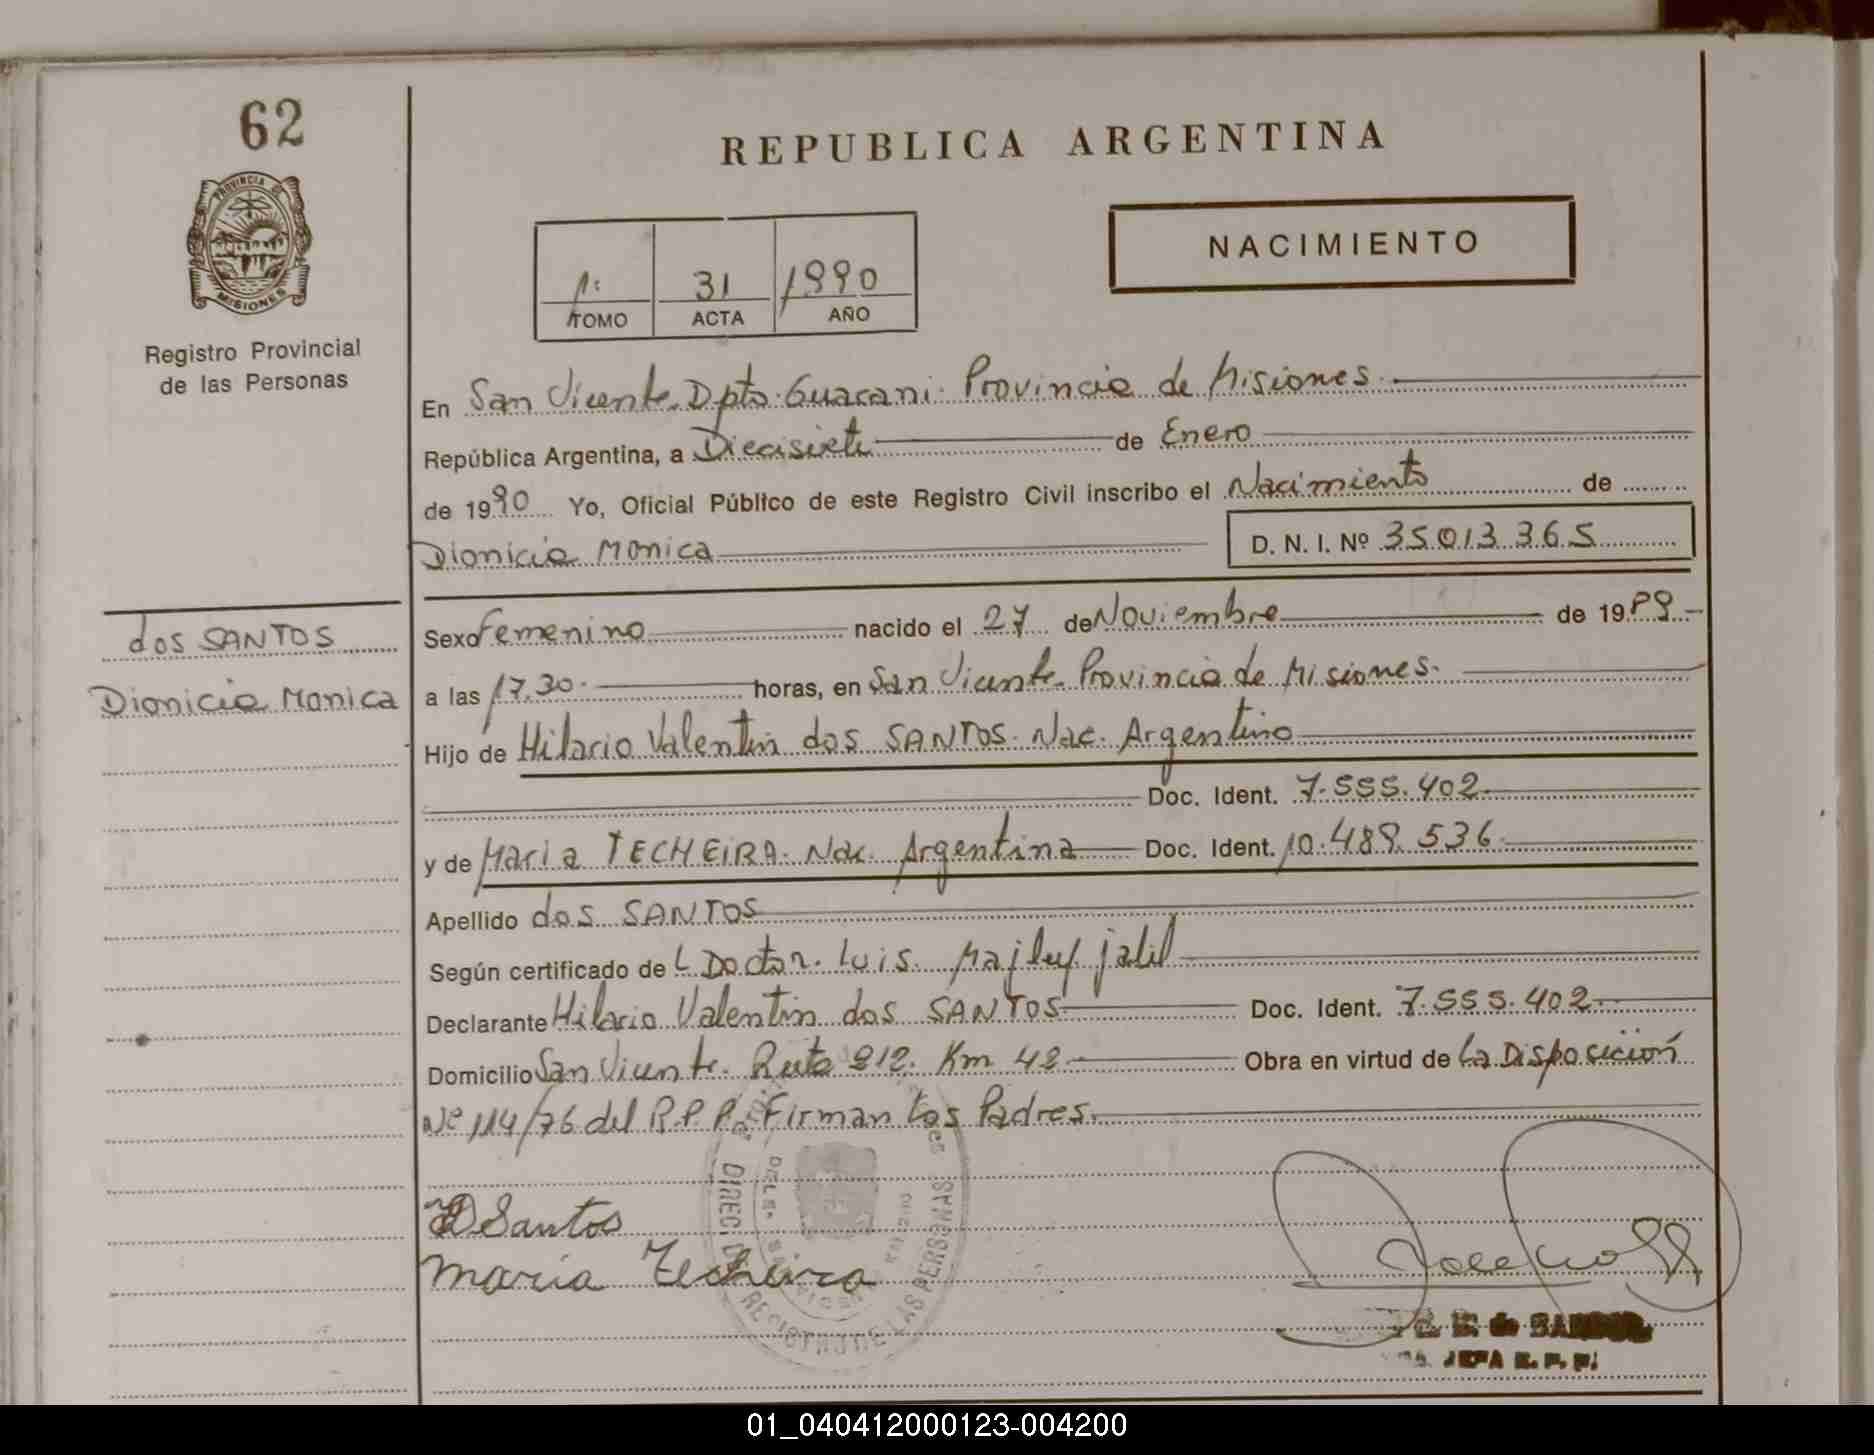 62
PROVINCIA DE
MISIONES
Registro Provincial
de las Personas
REPUBLICA ARGENTINA
NACIMIENTO
1: 31 1990
TOMO ACTA AÑO
En San Vicente. Dpto. Guarani. Provincia de Misiones.
República Argentina, a Diecisiete de Enero
de 1990 Yo, Oficial Público de este Registro Civil inscribo el Nacimiento de
Dionicia Monica D. N. I. Nº 35013365
dos SANTOS
Dionicia Monica
Sexo Femenino nacido el 27 de Noviembre de 1989.-
a las 17,30. horas, en San Vicente. Provincia de Misiones.
Hijo de Hilario Valentin dos SANTOS. Nac. Argentino
Doc. Ident. 7.555.402
y de Maria TECHEIRA. Nac. Argentina Doc. Ident. 10.489.536
Apellido dos SANTOS
Según certificado de L Doctor. Luis. Majluf jalil
Declarante Hilario Valentin dos SANTOS Doc. Ident. 7.555.402
Domicilio San Vicente. Ruta 212. Km 42 Obra en virtud de La Disposición
Nº 114/76 del R.P.P. Firman Los Padres.
DSantos
Maria Techeira
DIREC.
REGISTRO DE LAS PERSONAS
JEFA R. P. P.
01_040412000123-004200